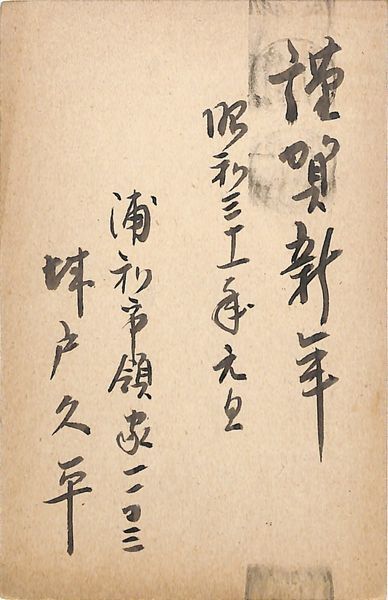 謹賀新年
昭和三十一年元旦
浦和市領家
城戸久平